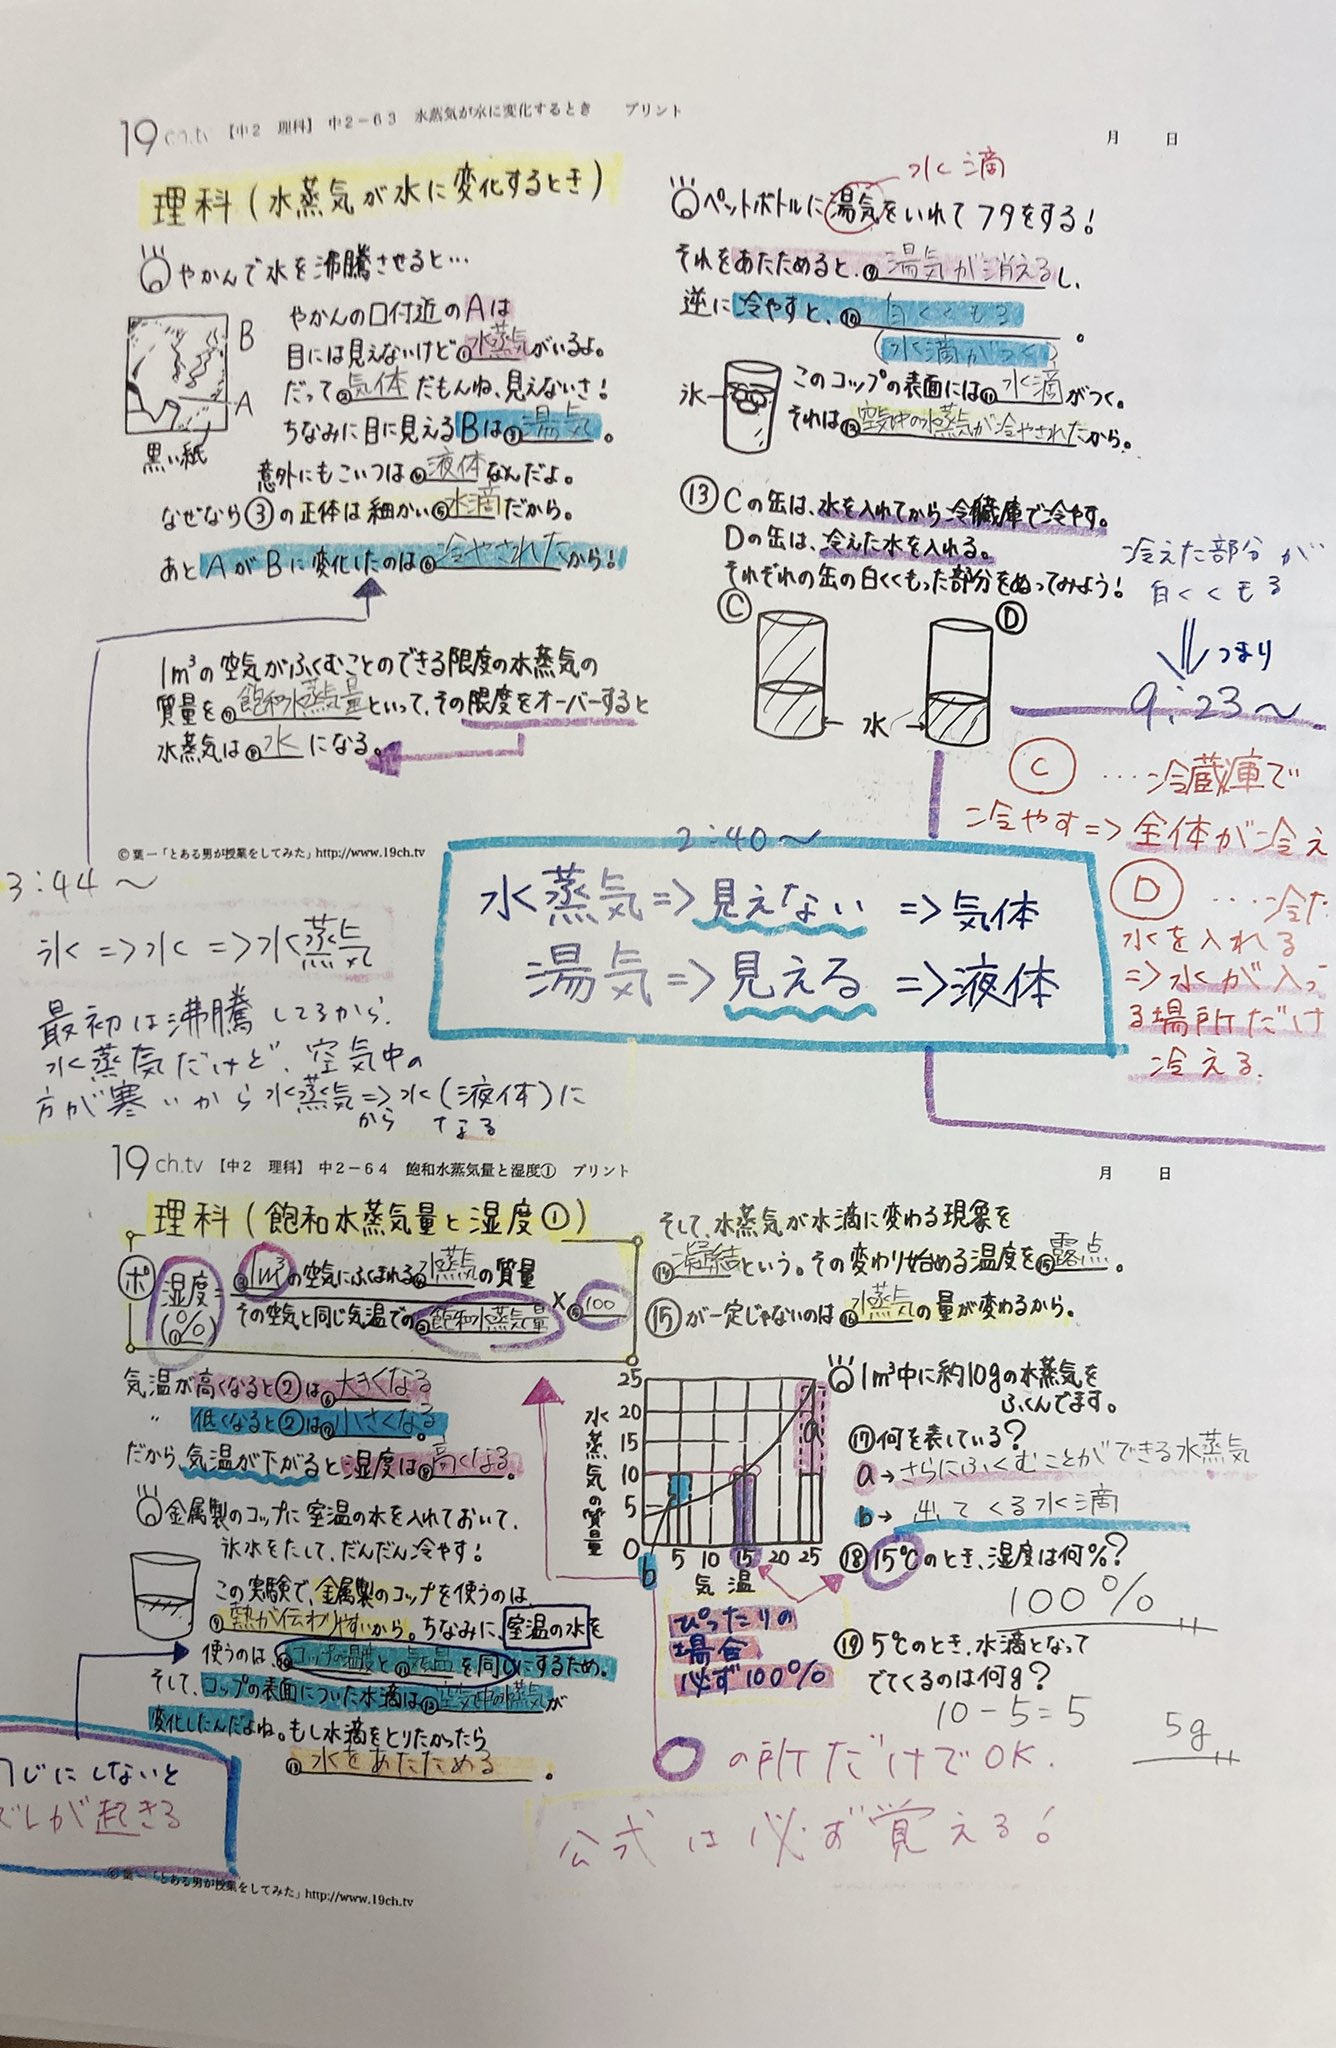 19ch.tv 【中2 理科】 中2-63 水蒸気が水に変化するとき プリント
月 日
理科(水蒸気が水に変化するとき)
やかんで水を沸騰させると…
やかんの口付近のAは
目には見えないけど①水蒸気がいるよ。
だって②気体だもんね、見えないさ!
ちなみに目に見えるBは③湯気。
B
A
黒い紙
意外にもこいつは④液体なんだよ。
なぜなら③の正体は細かい⑤水滴だから。
あとAがBに変化したのは⑥冷やされたから!
1m³の空気がふくむことのできる限度の水蒸気の
質量を⑦飽和水蒸気量といって、その限度をオーバーすると
水蒸気は⑧水になる。
©葉一「とある男が授業をしてみた」http://www.19ch.tv
3:44〜
氷=>水=>水蒸気
最初は沸騰してるから、
水蒸気だけど、空気中の
方が寒いから水蒸気=>水(液体)に
から なる
水滴
ペットボトルに湯気をいれてフタをする!
それをあたためると、⑨湯気が消えるし、
逆に冷やすと、⑩白くくもる。
(水滴がつく)
氷
このコップの表面には⑪水滴がつく。
それは⑫空気中の水蒸気が冷やされたから。
⑬Cの缶は、水を入れてから冷蔵庫で冷やす。
Dの缶は、冷えた水を入れる。
それぞれの缶の白くくもった部分をぬってみよう!
C
D
水
冷えた部分が
白くくもる
つまり
9:23〜
C …冷蔵庫で
冷やす=>全体が冷え
D …冷た
水を入れる
=>水が入っ
る場所だけ
冷える.
2:40〜
水蒸気=>見えない=>気体
湯気=>見える=>液体
19ch.tv 【中2 理科】 中2-64 飽和水蒸気量と湿度① プリント
月 日
理科(飽和水蒸気量と湿度①)
ポ
湿度(%)=
③1m³の空気にふくまれる④水蒸気の質量
その空気と同じ気温での②飽和水蒸気量
×⑤100
気温が高くなると②は⑥大きくなる
〃 低くなると②は⑦小さくなる。
だから、気温が下がると湿度は⑧高くなる。
金属製のコップに室温の水を入れておいて、
氷水をたして、だんだん冷やす!
この実験で、金属製のコップを使うのは、
⑨熱が伝わりやすいから。ちなみに、室温の水を
使うのは、⑩コップの温度と⑪気温を同じにするため。
そして、コップの表面についた水滴は⑫空気中の水蒸気が
変化したんだよね。もし水滴をとりたかったら
⑬水をあたためる。
じにしないと
ズレが起きる
©葉一「とある男が授業をしてみた」http://www.19ch.tv
そして、水蒸気が水滴に変わる現象を
⑭凝結という。その変わり始める温度を⑮露点。
⑮が一定じゃないのは⑯水蒸気の量が変わるから。
水蒸気の質量
25
20
15
10
5
0
5 10 15 20 25
気温
a
b
1m³中に約10gの水蒸気を
ふくんでます。
⑰何を表している?
a→さらにふくむことができる水蒸気
b→出てくる水滴
⑱15℃のとき、湿度は何%?
100%
⑲5℃のとき、水滴となって
でてくるのは何g?
10-5=5
5g
ぴったりの
場合
必ず100%
○の所だけでOK.
公式は必ず覚える!